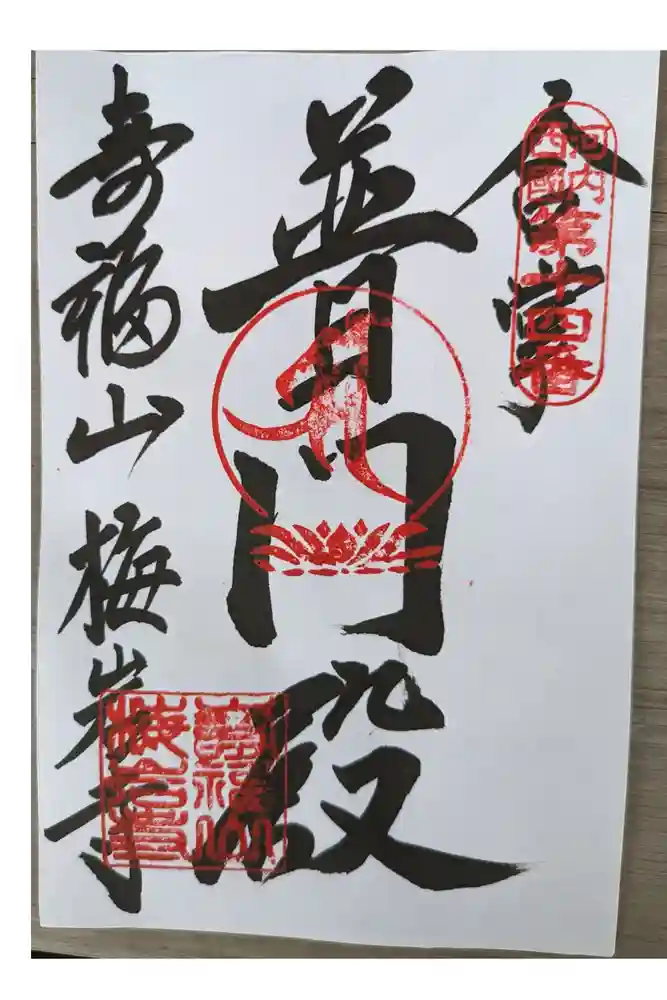 合掌
河内
西國
第十四番
普門殿
寿福山 梅岩寺
壽福山
梅岩寺